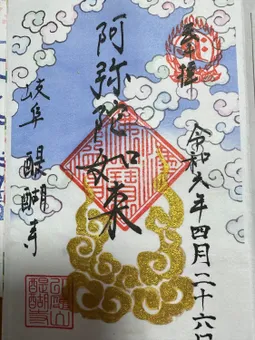 奉拝
令和六年四月二十六日
阿弥陀如来
岐阜 醍醐寺